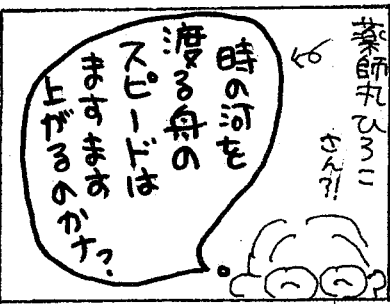 薬師丸ひろこ
さん?!
時の河を
渡る舟の
スピードは
ますます
上がるのかナ?